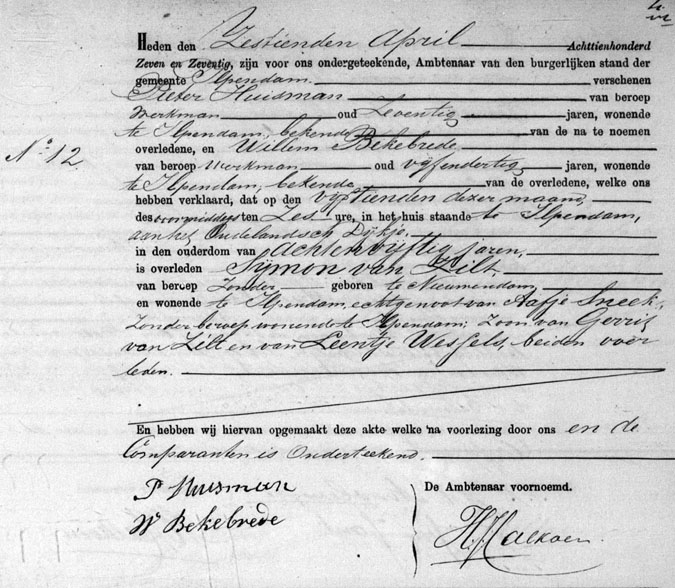 Heden den Zestienden April Achttienhonderd
Zeven en Zeventig, zijn voor ons ondergeteekende, Ambtenaar van den burgerlijken stand der
gemeente Ilpendam verschenen
Pieter Huisman van beroep
Werkman oud Zeventig jaren, wonende
te Ilpendam, bekende van de na te noemen
Nº 12
overledene, en Willem Bekebrede
van beroep Werkman oud vyfendertig jaren, wonende
te Ilpendam, bekende van de overledene, welke ons
hebben verklaard, dat op den vyftienden dezer maand,
des voormiddags ten Zes ure, in het huis staande te Ilpendam,
aan het Oudelandsch Dijkje,
in den ouderdom van achtenvyftig jaren,
is overleden Sijmon van Zilt
van beroep Zonder geboren te Nieuwendam
en wonende te Ilpendam, echtgenoot van Aafje Sneek,
Zonder beroep wonende te Ilpendam; Zoon van Gerrit
van Zilt en van Leentje Wessels, beiden over
leden.
En hebben wij hiervan opgemaakt deze akte welke na voorlezing door ons en de
Comparanten is Onderteekend.
P Huisman
W Bekebrede
De Ambtenaar voornoemd.
Calkoen